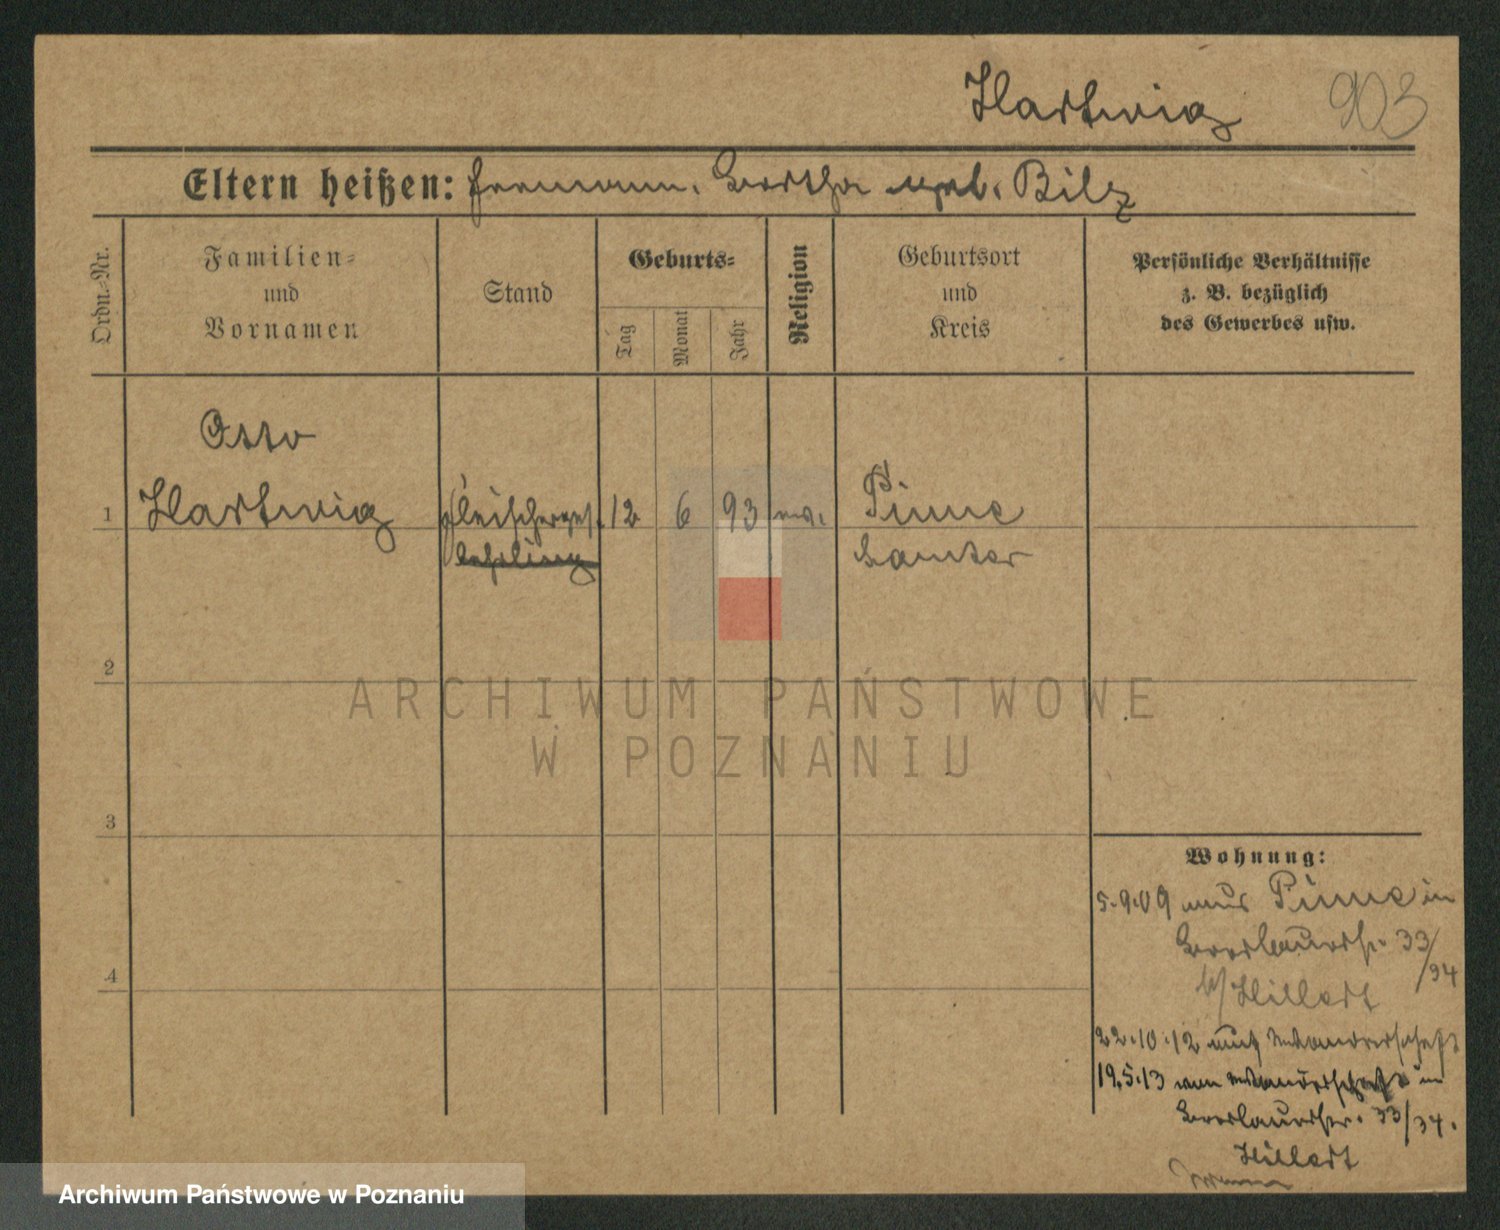 Hartwig 903
Eltern heißen: Hermann. Bertha geb. Bilz
Ordn.-Nr.
Familien-
und
Vornamen
Stand
Geburts-
Tag
Monat
Jahr
Religion
Geburtsort
und
Kreis
Persönliche Verhältnisse
z. B. bezüglich
des Gewerbes usw.
Otto
1 Hartwig Fleischerges. 12 6 93 ev. Pinne
lehrling Samter
2
3
4
Wohnung:
5.9.09 aus Pinne in
33/34
b/Hillert
22.10.12 auf Wanderschaft
19.5.13 von Wanderschaft in
33/34.
Hillert
ARCHIWUM PAŃSTWOWE
W POZNANIU
Archiwum Państwowe w Poznaniu